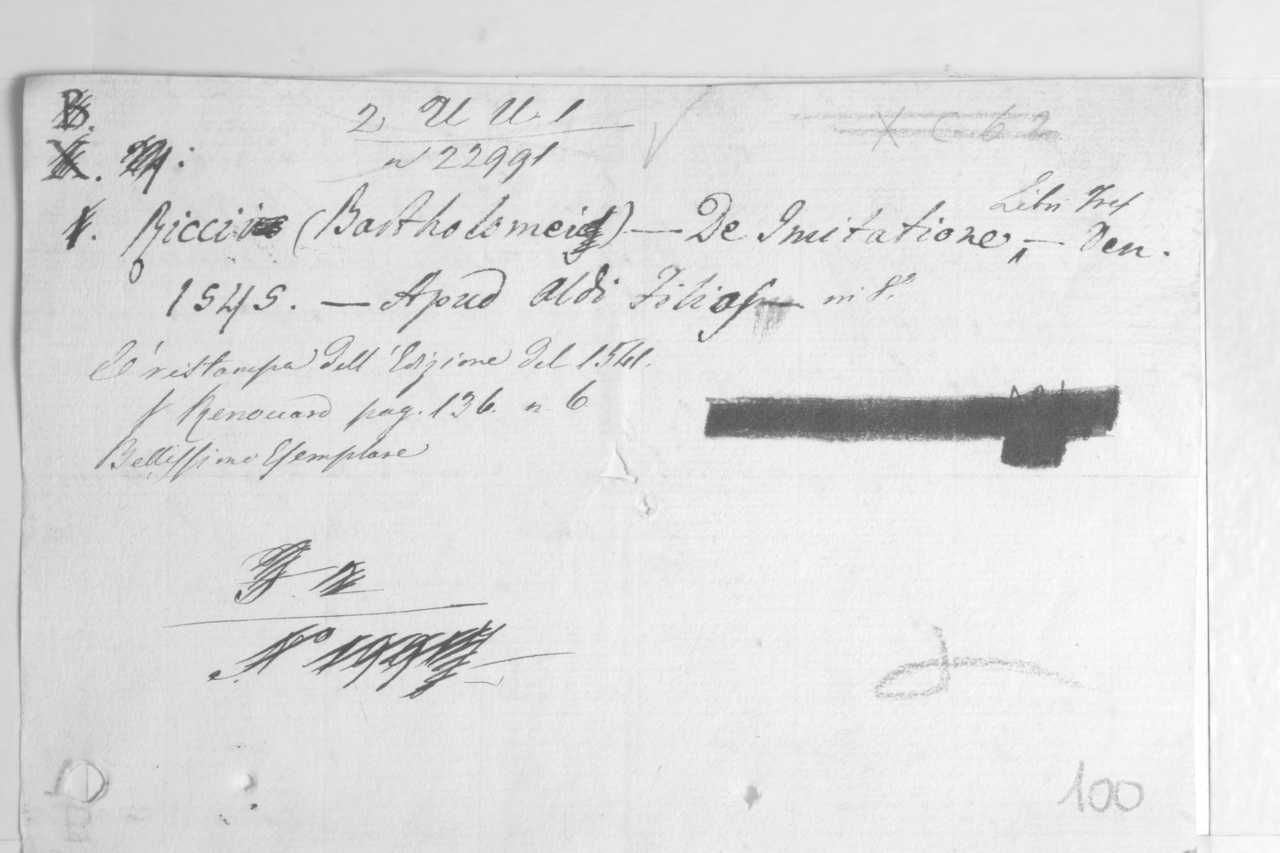 B. 2, U U. 1
X. n 22991
1. Riccii (Bartholomei) — De Imitatione, Libri Tres — Ven.
1545. — Apud Aldi Filios — in 8.º
E' ristampa dell' Edizione del 1541.
V Renouard pag. 136. n. 6
Bellissimo Esemplare
Nº
100